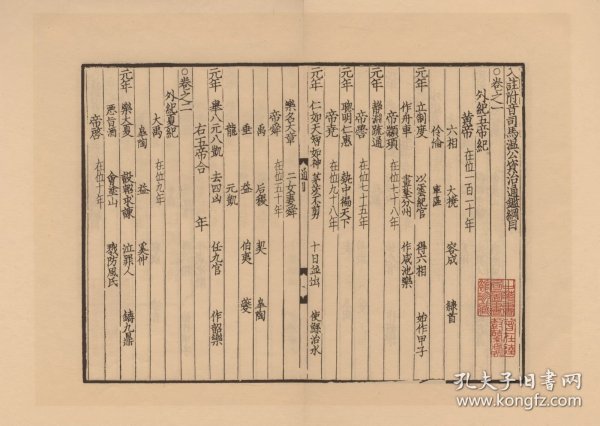 入註附音司馬温公資治通鑑綱目
○卷之一
外紀五帝紀
黄帝 在位一百一十年
六相 大撓 容成 隸首
伶倫 車區
元年 立制度 以雲紀官 得六相 始作甲子
作舟車 畫埜分州 作咸池樂
帝顓頊 在位七十八年
静淵疏通
帝嚳 在位七十五年
元年 聰明仁惠 執中徧天下
帝堯 在位九十八年
元年 仁如天智如神 茅茨不剪 十日並出 使鯀治水
通目
樂名大章 二女妻舜
帝舜 在位五十年
禹 后稷 契 皐陶
垂 益 伯夷 夔
龍 元凱
元年 舉八元八凱 去四凶 任九官 作韶樂
右五帝合 年
○卷之二
外紀夏紀
大禹 在位九年
皐陶 益 奚仲
元年 樂大夏 設鞀求諫 泣罪人 鑄九鼎
惡旨酒 會塗山 戮防風氏
帝啓 在位十年
孔夫子旧书网
www.kongfz.com